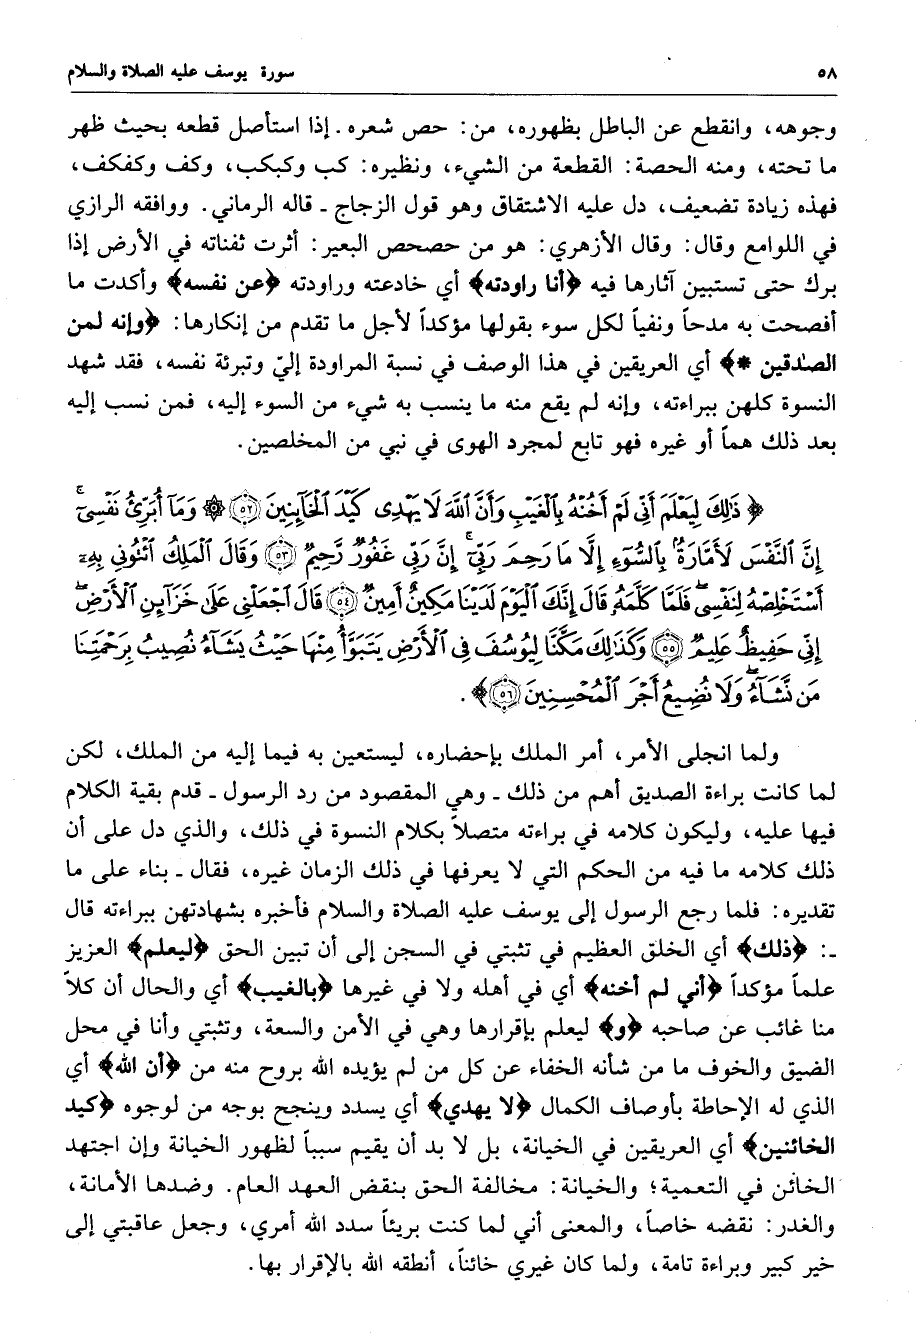 ٥٨ سورة يوسف عليه الصلاة والسلام
وجوهه، وانقطع عن الباطل بظهوره، من: حص شعره. إذا استأصل قطعه بحيث ظهر
ما تحته، ومنه الحصة: القطعة من الشيء، ونظيره: كب وكبكب، وكف وكفكف،
فهذه زيادة تضعيف، دل عليه الاشتقاق وهو قول الزجاج ـ قاله الرماني. ووافقه الرازي
في اللوامع وقال: وقال الأزهري: هو من حصحص البعير: أثرت ثفناته في الأرض إذا
برك حتى تستبين آثارها فيه ﴿أنا راودته﴾ أي خادعته وراودته ﴿عن نفسه﴾ وأكدت ما
أفصحت به مدحاً ونفياً لكل سوء بقولها مؤكداً لأجل ما تقدم من إنكارها: ﴿وإنه لمن
الصدقين *﴾ أي العريقين في هذا الوصف في نسبة المراودة إليّ وتبرئة نفسه، فقد شهد
النسوة كلهن ببراءته، وإنه لم يقع منه ما ينسب به شيء من السوء إليه، فمن نسب إليه
بعد ذلك هماً أو غيره فهو تابع لمجرد الهوى في نبي من المخلصين.
﴿ ذَٰلِكَ لِيَعْلَمَ أَنِّي لَمْ أَخُنْهُ بِالْغَيْبِ وَأَنَّ اللَّهَ لَا يَهْدِي كَيْدَ الْخَائِنِينَ ﴿٥٢﴾ ۞ وَمَا أُبَرِّئُ نَفْسِي ۚ
إِنَّ النَّفْسَ لَأَمَّارَةٌ بِالسُّوءِ إِلَّا مَا رَحِمَ رَبِّي ۚ إِنَّ رَبِّي غَفُورٌ رَّحِيمٌ ﴿٥٣﴾ وَقَالَ الْمَلِكُ ائْتُونِي بِهِ
أَسْتَخْلِصْهُ لِنَفْسِي ۖ فَلَمَّا كَلَّمَهُ قَالَ إِنَّكَ الْيَوْمَ لَدَيْنَا مَكِينٌ أَمِينٌ ﴿٥٤﴾ قَالَ اجْعَلْنِي عَلَىٰ خَزَائِنِ الْأَرْضِ ۖ
إِنِّي حَفِيظٌ عَلِيمٌ ﴿٥٥﴾ وَكَذَٰلِكَ مَكَّنَّا لِيُوسُفَ فِي الْأَرْضِ يَتَبَوَّأُ مِنْهَا حَيْثُ يَشَاءُ ۚ نُصِيبُ بِرَحْمَتِنَا
مَن نَّشَاءُ ۖ وَلَا نُضِيعُ أَجْرَ الْمُحْسِنِينَ ﴿٥٦﴾ ﴾.
ولما انجلى الأمر، أمر الملك بإحضاره، ليستعين به فيما إليه من الملك، لكن
لما كانت براءة الصديق أهم من ذلك ـ وهي المقصود من رد الرسول ـ قدم بقية الكلام
فيها عليه، وليكون كلامه في براءته متصلاً بكلام النسوة في ذلك، والذي دل على أن
ذلك كلامه ما فيه من الحكم التي لا يعرفها في ذلك الزمان غيره، فقال ـ بناء على ما
تقديره: فلما رجع الرسول إلى يوسف عليه الصلاة والسلام فأخبره بشهادتهن ببراءته قال
ـ: ﴿ذلك﴾ أي الخلق العظيم في تثبتي في السجن إلى أن تبين الحق ﴿ليعلم﴾ العزيز
علماً مؤكداً ﴿أني لم أخنه﴾ أي في أهله ولا في غيرها ﴿بالغيب﴾ أي والحال أن كلاً
منا غائب عن صاحبه ﴿و﴾ ليعلم بإقرارها وهي في الأمن والسعة، وتثبتي وأنا في محل
الضيق والخوف ما من شأنه الخفاء عن كل من لم يؤيده الله بروح منه من ﴿أن الله﴾ أي
الذي له الإحاطة بأوصاف الكمال ﴿لا يهدي﴾ أي يسدد وينجح بوجه من لوجوه ﴿كيد
الخائنين﴾ أي العريقين في الخيانة، بل لا بد أن يقيم سبباً لظهور الخيانة وإن اجتهد
الخائن في التعمية؛ والخيانة: مخالفة الحق بنقض العهد العام. وضدها الأمانة،
والغدر: نقضه خاصاً، والمعنى أني لما كنت بريئاً سدد الله أمري، وجعل عاقبتي إلى
خير كبير وبراءة تامة، ولما كان غيري خائناً، أنطقه الله بالإقرار بها.